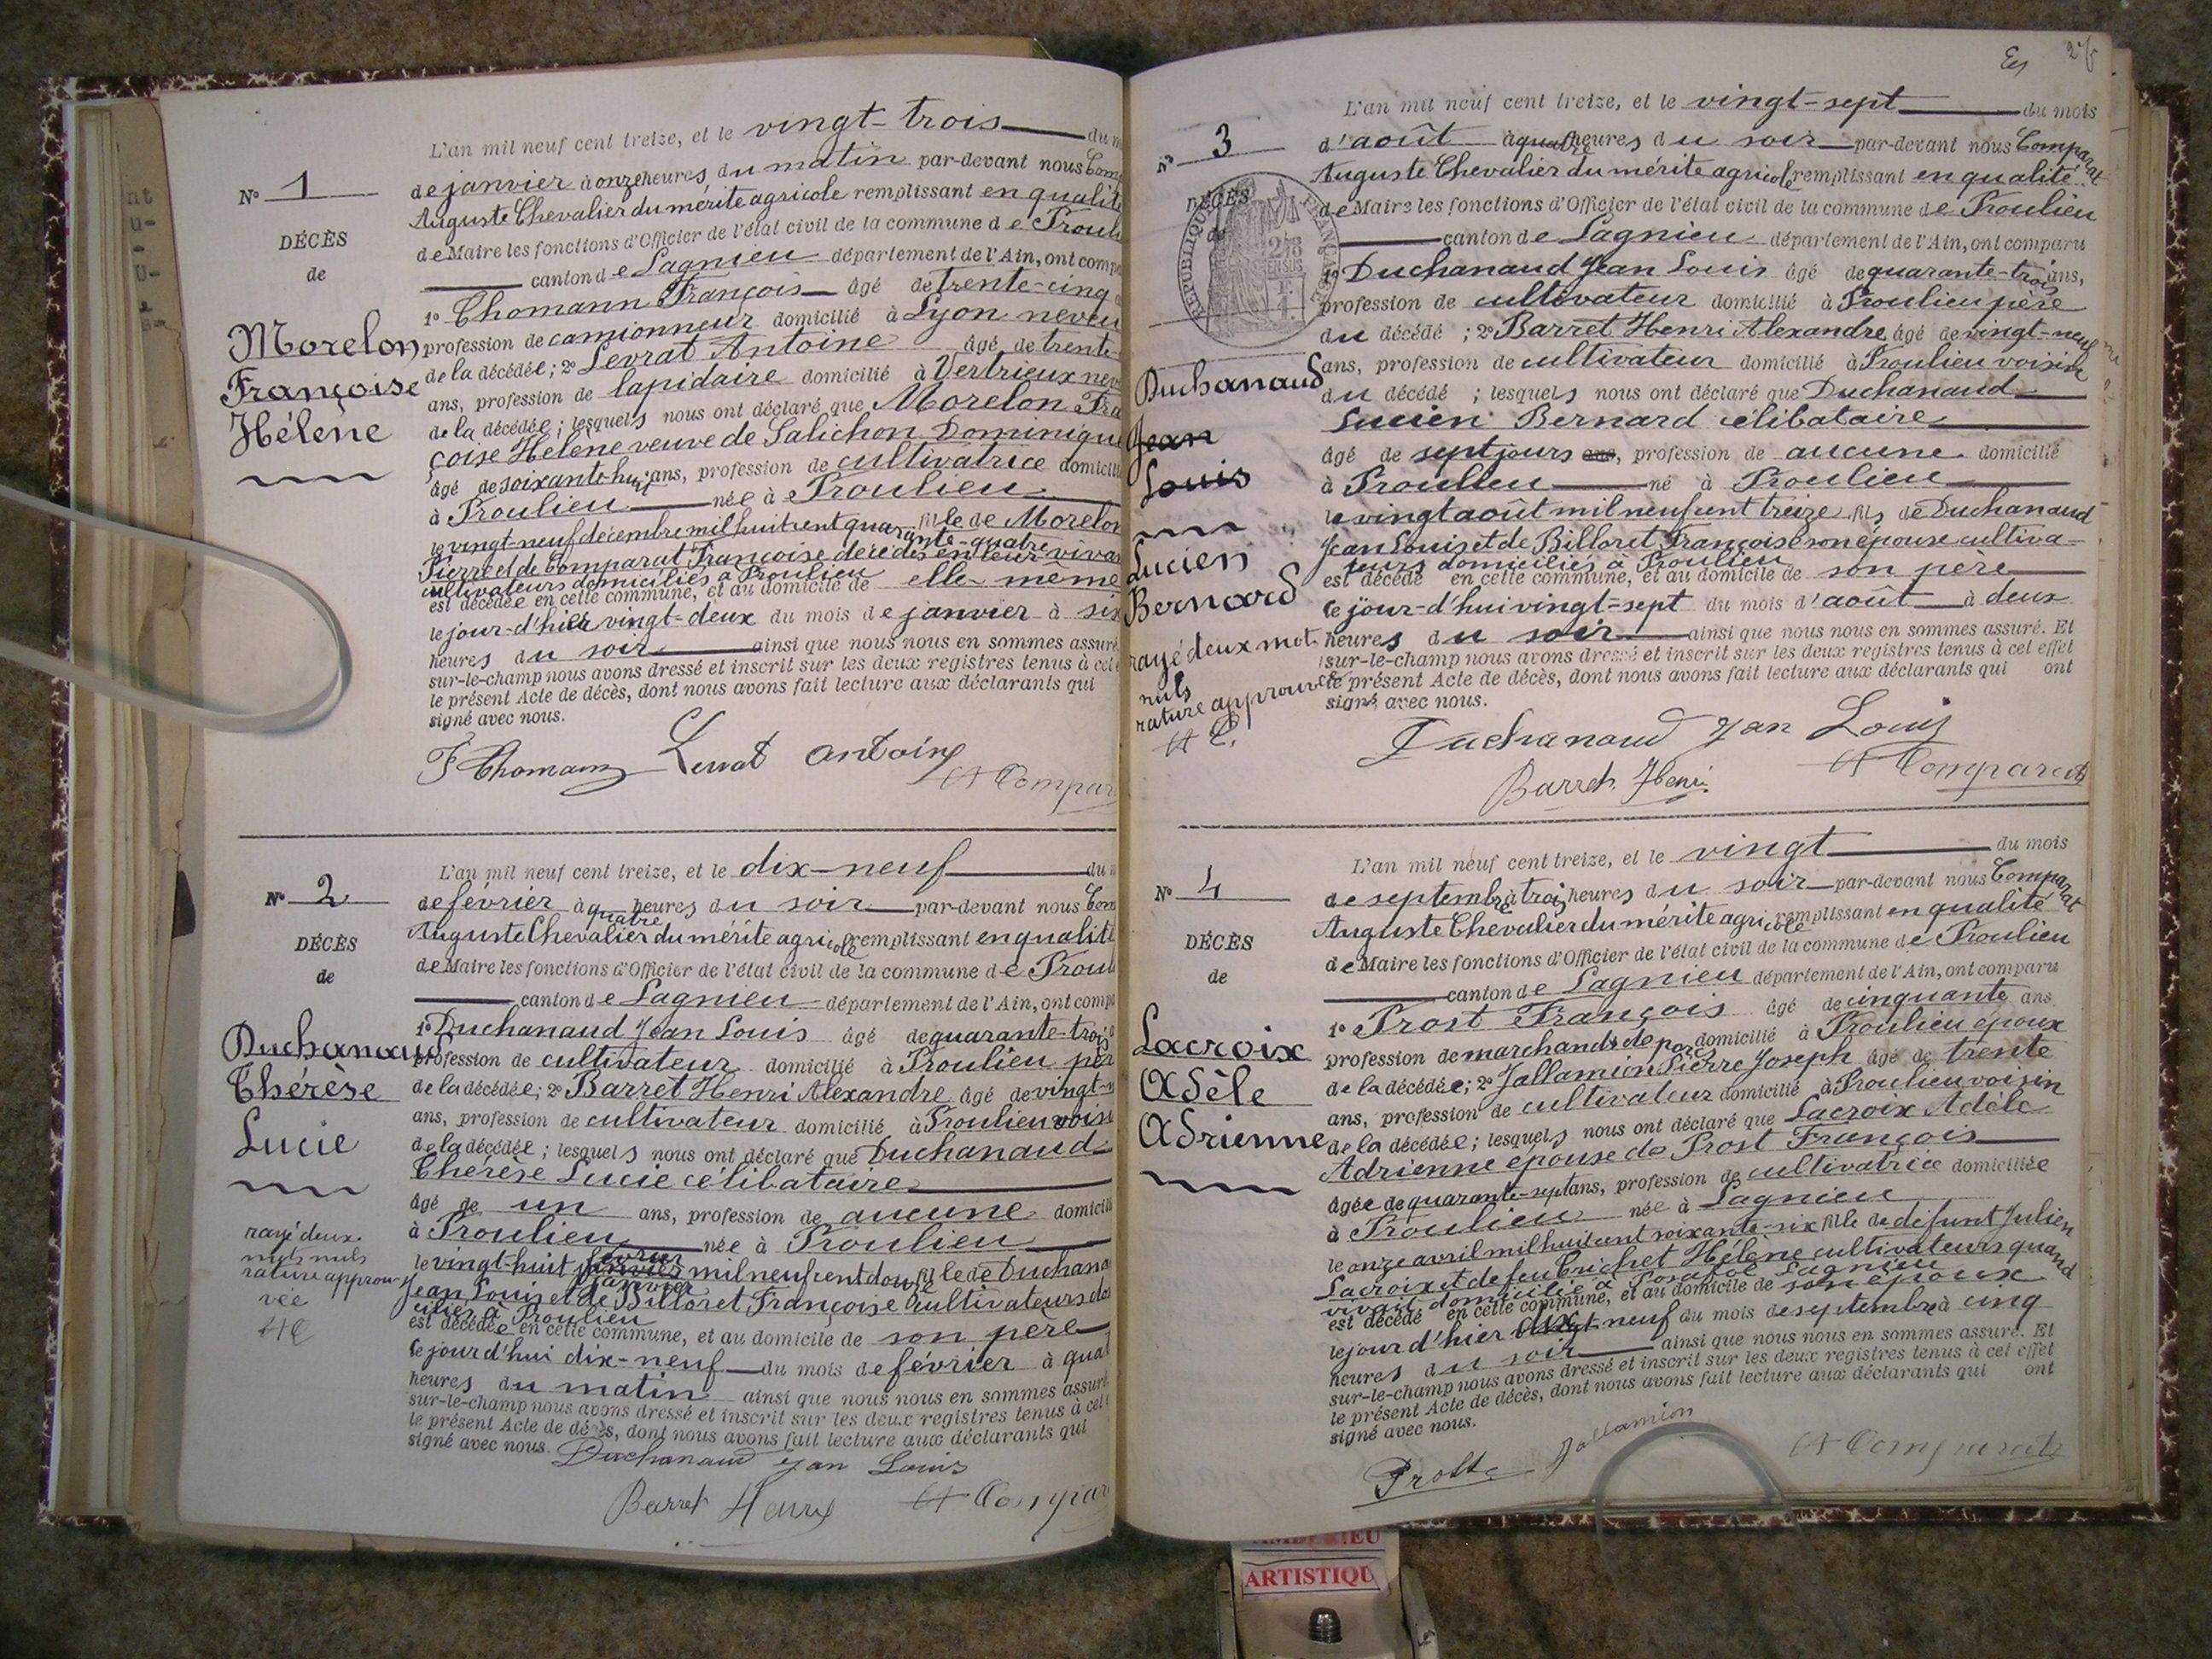 L'an mil neuf cent treize, et le vingt-trois du
N° 1
de janvier à onze heures du matin par-devant nous Com
Auguste Chevalier du mérite agricole remplissant en qualité
DÉCÈS
de Maire les fonctions d'Officier de l'état civil de la commune de Proul
de
canton de Lagnieu département de l'Ain, ont comp
1° Thomann François âgé de trente-cinq
Morelon
profession de camionneur domicilié à Lyon neveu
de la décédée; 2° Levrat Antoine âgé de trente-
Françoise
ans, profession de lapidaire domicilié à Vertrieux nev
Hélène
de la décédée; lesquels nous ont déclaré que Morelon Fra
çoise Hélène veuve de Salichon Dominique
âgé de soixante-huit ans, profession de cultivatrice domicili
à Proulieu née à Proulieu
le vingt-neuf décembre mil huit cent quarante-quatre fille de Morelon
Pierre et de Comparat Françoise décédés en leur vivan
cultivateurs domiciliés à Proulieu
est décédée en cette commune, et au domicile de elle-même
le jour-d'hier vingt-deux du mois de janvier à six
heures du soir ainsi que nous nous en sommes assuré
sur-le-champ nous avons dressé et inscrit sur les deux registres tenus à cet e
le présent Acte de décès, dont nous avons fait lecture aux déclarants qui
signé avec nous.
F Thomann Levrat antoine
A Compar
L'an mil neuf cent treize, et le dix-neuf du
N° 2
de février à quatre heures du soir par-devant nous Com
Auguste Chevalier du mérite agricole remplissant en qualité
DÉCÈS
de Maire les fonctions d'Officier de l'état civil de la commune de Proul
de
canton de Lagnieu département de l'Ain, ont compa
1° Duchanaud Jean Louis âgé de quarante-trois
Duchanaud
profession de cultivateur domicilié à Proulieu pèr
Thérèse
de la décédée; 2° Barret Henri Alexandre âgé de vingt-n
ans, profession de cultivateur domicilié à Proulieu voisi
Lucie
de la décédée; lesquels nous ont déclaré que Duchanaud
Thérèse Lucie célibataire
âgé de un ans, profession de aucune domicili
rayé deux
à Proulieu née à Proulieu
mots nuls
rature approu-
vée
AC
le vingt-huit janvier février janvier mil neuf cent douze fille de Duchana
Jean Louis et de Billoret Françoise cultivateurs do
ciliés à Proulieu
est décédée en cette commune, et au domicile de son père
le jour d'hui dix-neuf du mois de février à quat
heures du matin ainsi que nous nous en sommes assuré
sur-le-champ nous avons dressé et inscrit sur les deux registres tenus à cet
le présent Acte de décès, dont nous avons fait lecture aux déclarants qui
signé avec nous. Duchanaud Jan Louis
Barret Henri A Compar
L'an mil neuf cent treize, et le vingt-sept du mois
N° 3
d'août à quatre heures du soir par-devant nous Comparat
Auguste Chevalier du mérite agricole remplissant en qualité
DÉCÈS
de
de Maire les fonctions d'Officier de l'état civil de la commune de Proulieu
canton de Lagnieu département de l'Ain, ont comparu
1° Duchanaud Jean Louis âgé de quarante-trois ans,
profession de cultivateur domicilié à Proulieu père
du décédé ; 2° Barret Henri Alexandre âgé de vingt-neuf
Duchanaud
ans, profession de cultivateur domicilié à Proulieu voisin
du décédé ; lesquels nous ont déclaré que Duchanaud
Jean
Lucien Bernard célibataire
Louis
âgé de sept jours ans, profession de aucune domicilié
à Proulieu né à Proulieu
le vingt août mil neuf cent treize fils de Duchanaud
Lucien
Jean Louis et de Billoret Françoise son épouse cultiva-
teurs domiciliés à Proulieu
Bernard
est décédé en cette commune, et au domicile de son père
le jour-d'hui vingt-sept du mois d'août à deux
rayé deux mots
nuls
rature approuvée
AC.
heures du soir ainsi que nous nous en sommes assuré. Et
sur-le-champ nous avons dressé et inscrit sur les deux registres tenus à cet effet
le présent Acte de décès, dont nous avons fait lecture aux déclarants qui ont
signé avec nous.
Duchanaud Jan Louis
Barret Henri A Comparat
L'an mil neuf cent treize, et le vingt du mois
N° 4
de septembre à trois heures du soir par-devant nous Comparat
Auguste Chevalier du mérite agricole remplissant en qualité
DÉCÈS
de Maire les fonctions d'Officier de l'état civil de la commune de Proulieu
de
canton de Lagnieu département de l'Ain, ont comparu
1° Prost François âgé de cinquante ans
Lacroix
profession de marchands de porcs domicilié à Proulieu époux
Adèle
de la décédée; 2° Jallamion Pierre Joseph âgé de trente
ans, profession de cultivateur domicilié à Proulieu voisin
Adrienne
de la décédée; lesquels nous ont déclaré que Lacroix Adèle
Adrienne épouse de Prost François
âgée de quarante-sept ans, profession de cultivatrice domiciliée
à Proulieu née à Lagnieu
le onze avril mil huit cent soixante-six fille de défunt Julien
Lacroix et de feu Brichet Hélène cultivateurs quand
vivait domicilié à Lagnieu
est décédé en cette commune, et au domicile de son époux
le jour d'hier dix neuf du mois de septembre à cinq
heures du soir ainsi que nous nous en sommes assuré. Et
sur-le-champ nous avons dressé et inscrit sur les deux registres tenus à cet effet
le présent Acte de décès, dont nous avons fait lecture aux déclarants qui ont
signé avec nous.
Prost Jallamion A Comparat
ARTISTIQU